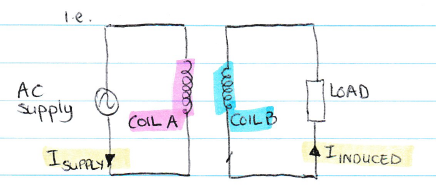 i.e.
AC
supply
COIL A
COIL B
LOAD
I SUPPLY
I INDUCED